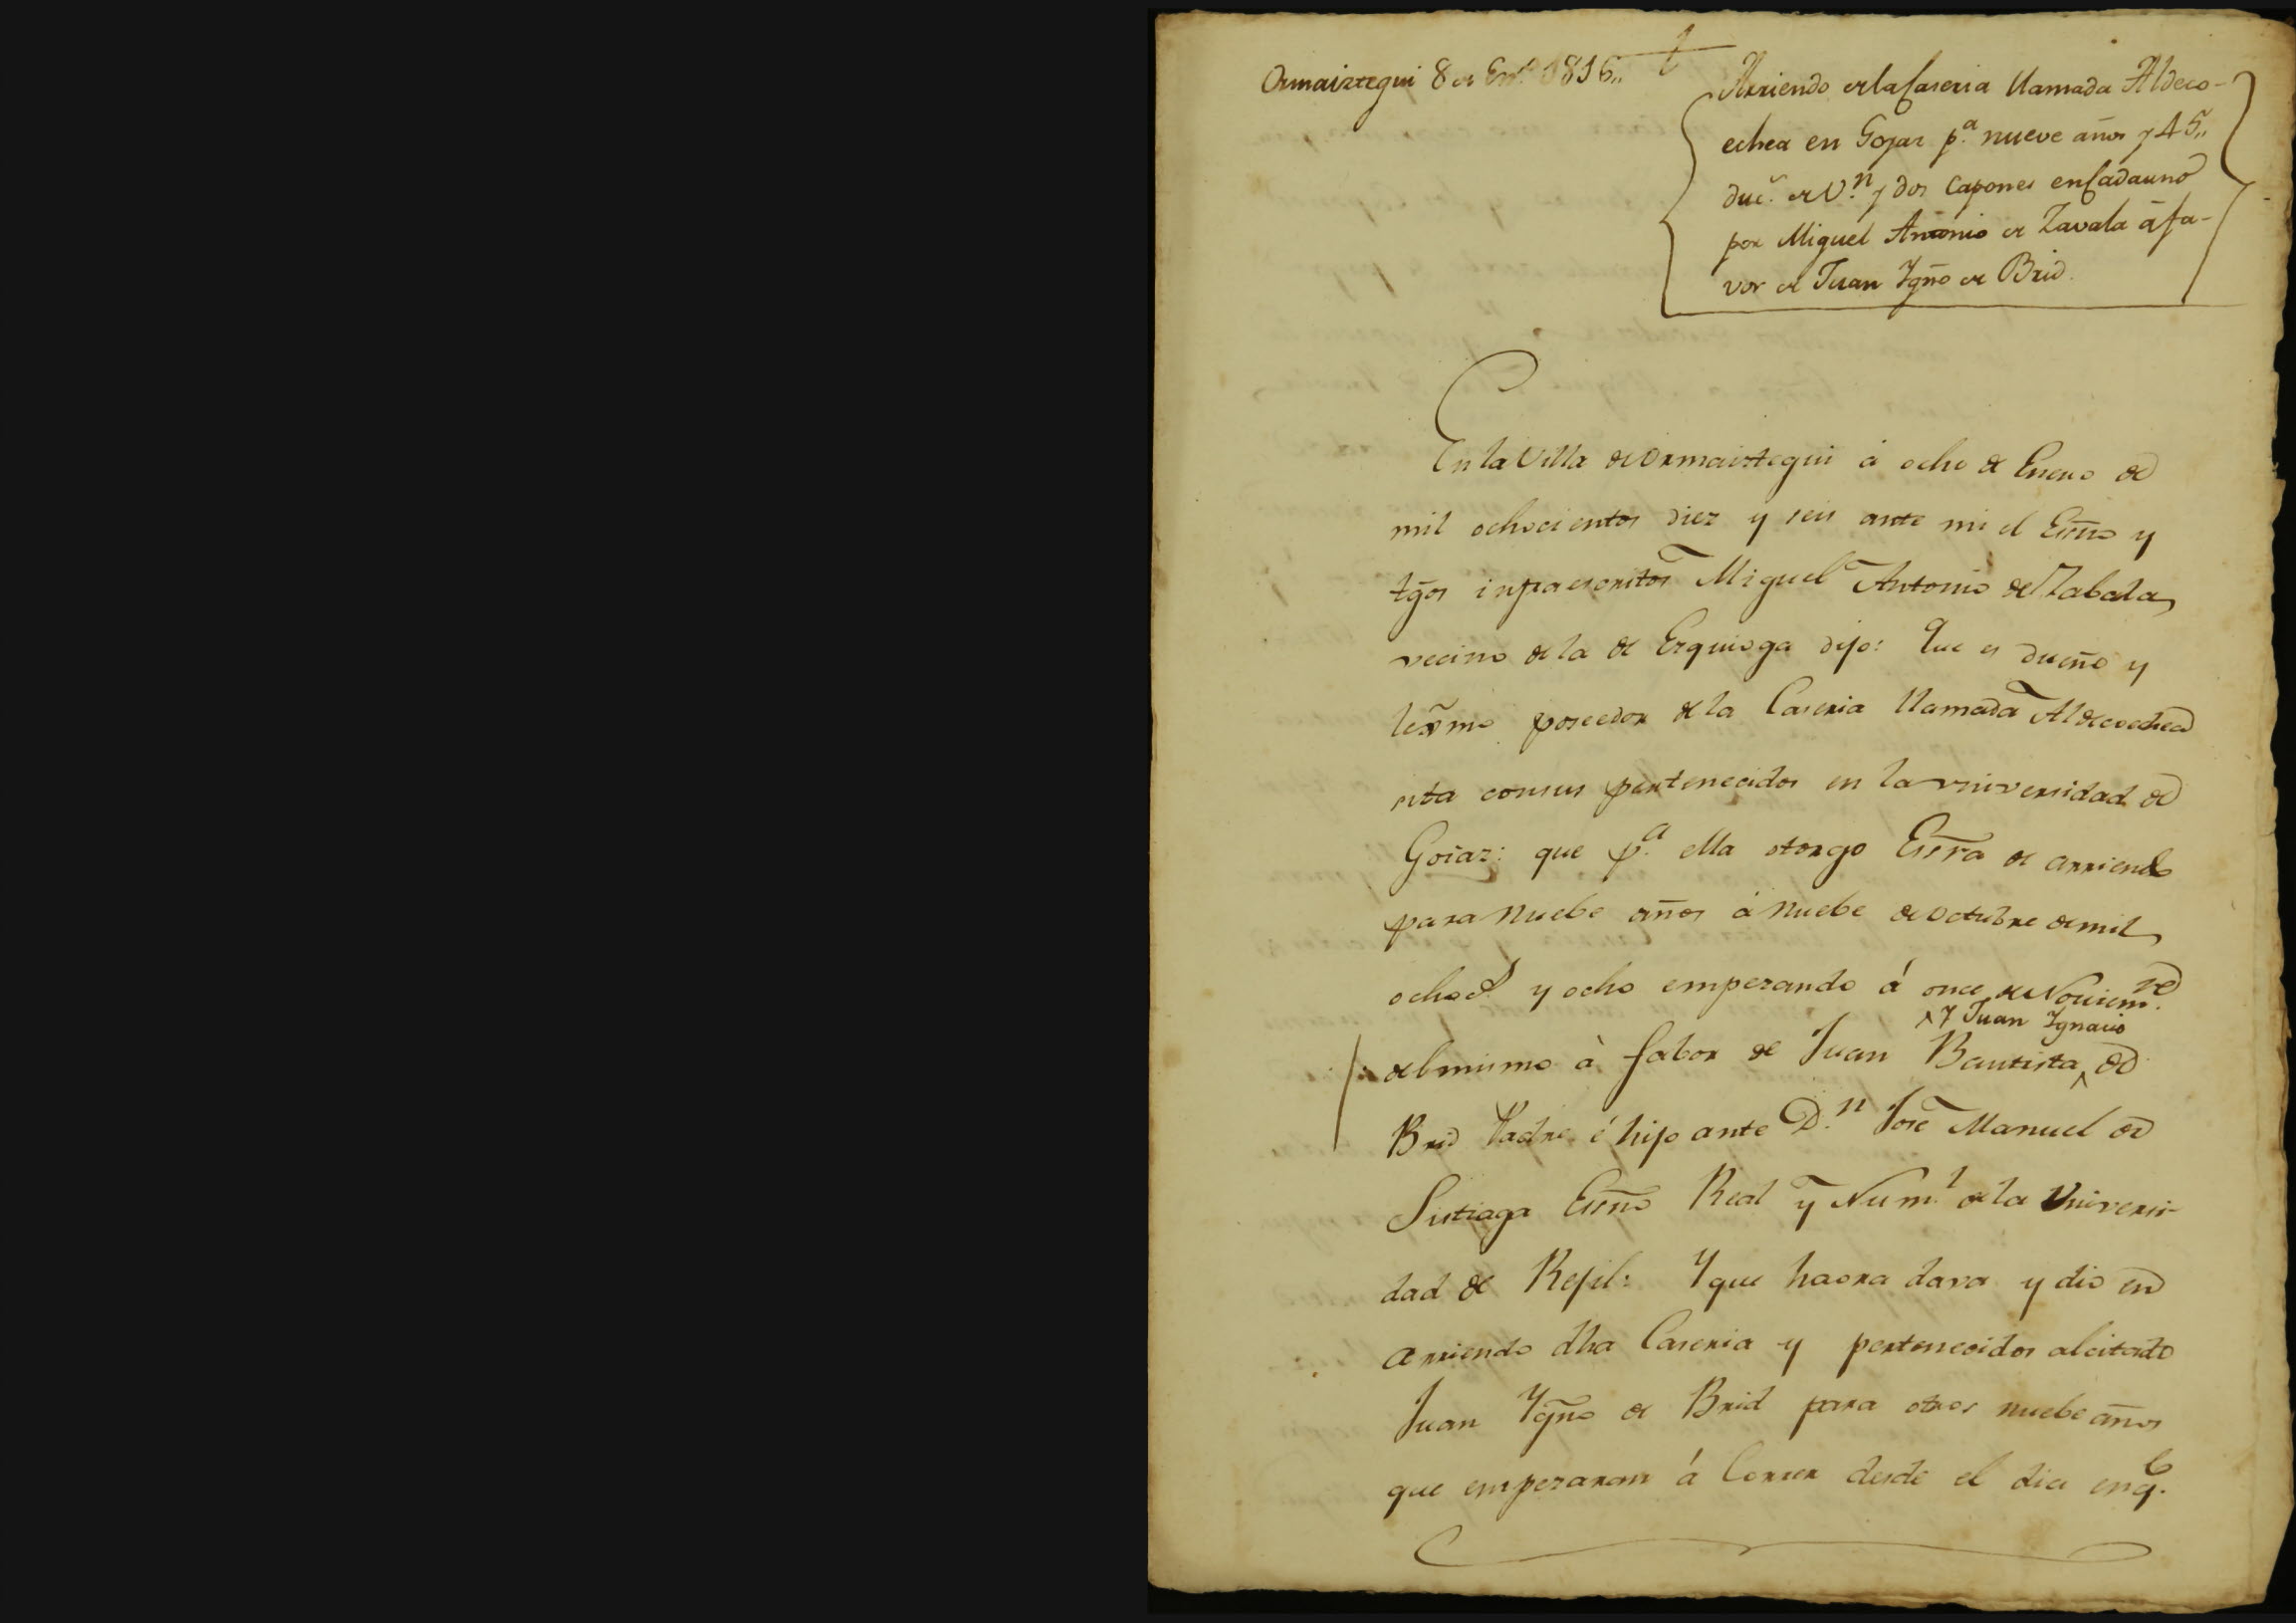 Ormaiztegui 8 de En.º 1816,,
Arriendo de la Caseria llamada Aldeco-
echea en Gojaz p.ª nueve años y 45,,
duc.s de V.n y dos Capones en Cada uno
por Miguel Antonio de Zavala á fa-
vor de Juan Ygño de Brid.
En la Villa de Ormaiztegui á ocho de Enero de
mil ochocientos diez y seis ante mi el Esño y
tgos infraescritos Miguel Antonio de Zabala
vecino de la de Ezquioga dijo: Que es dueño y
lexmo poseedor de la Caseria llamada Aldecoechea
sita con sus pertenecidos en la vniversidad de
Goiaz: que p.ª ella otorgo Esrra de arriendo
para nuebe años á nuebe de Octubre de mil
ochoc.s y ocho empezando á once de Noviem.re
y Juan Ignacio
del mismo à fabor de Juan Bautista ^ de
Brid Padre é hijo ante D.n José Manuel de
Sistiaga Esño Real y Num.l de la Vniversi-
dad de Rejil: Y que haora dava y dio en
arriendo dha Caseria y pertenecidos al citado
Juan Ygño de Brid para otros nuebe años
que empezaran á Correr desde el dia en q.e